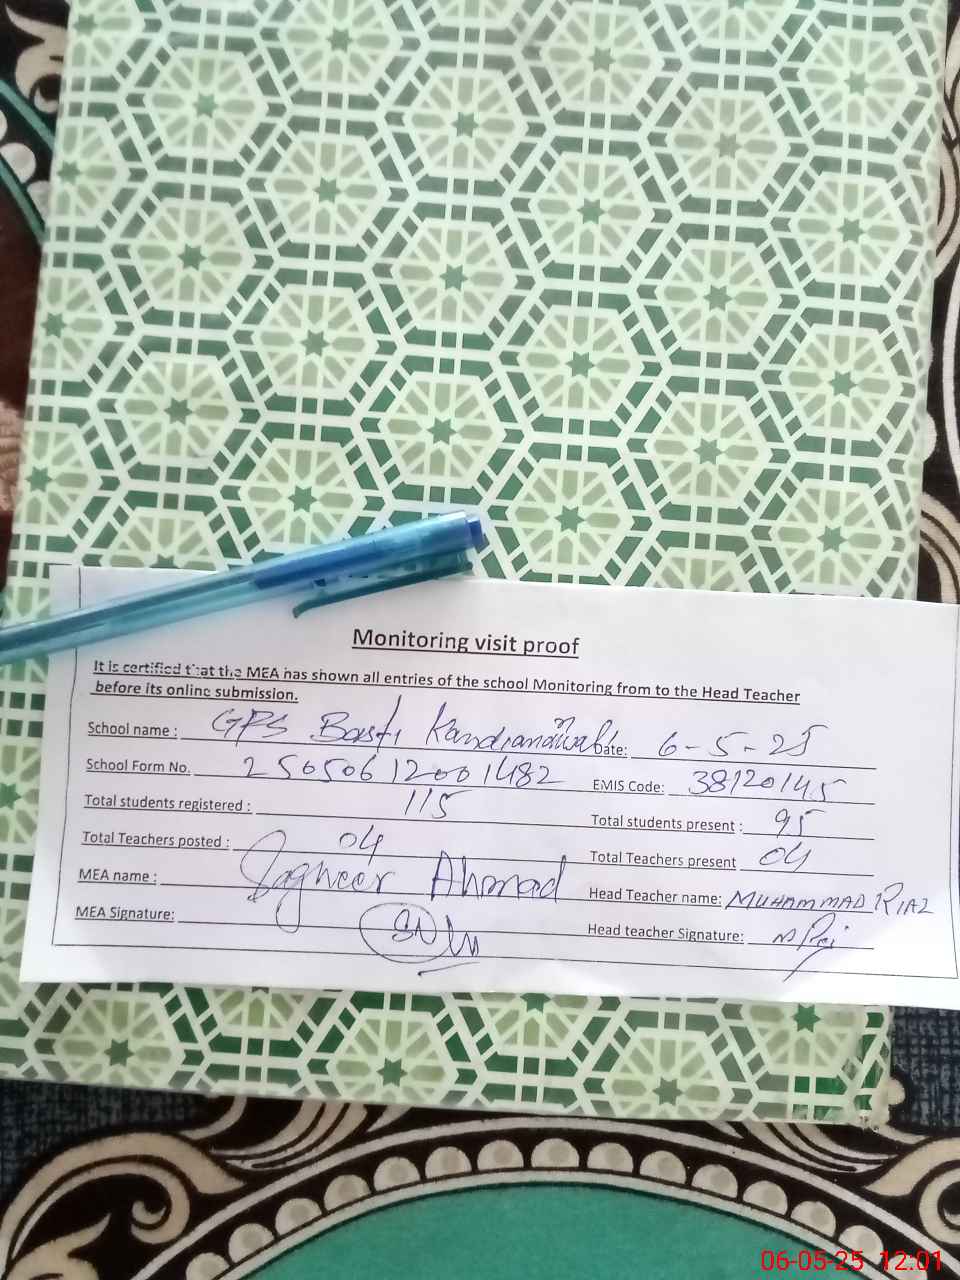 Monitoring visit proof
It is certified that the MEA has shown all entries of the school Monitoring from to the Head Teacher
before its online submission.
School name : GPS Basti Date: 6-5-25
School Form No. 25050612001482 EMIS Code: 38120145
Total students registered : 115 Total students present : 95
Total Teachers posted : 04 Total Teachers present 04
MEA name : Sagheer Ahmad Head Teacher name: MUHAMMAD RIAZ
MEA Signature: Head teacher Signature:
06-05-25 12:01